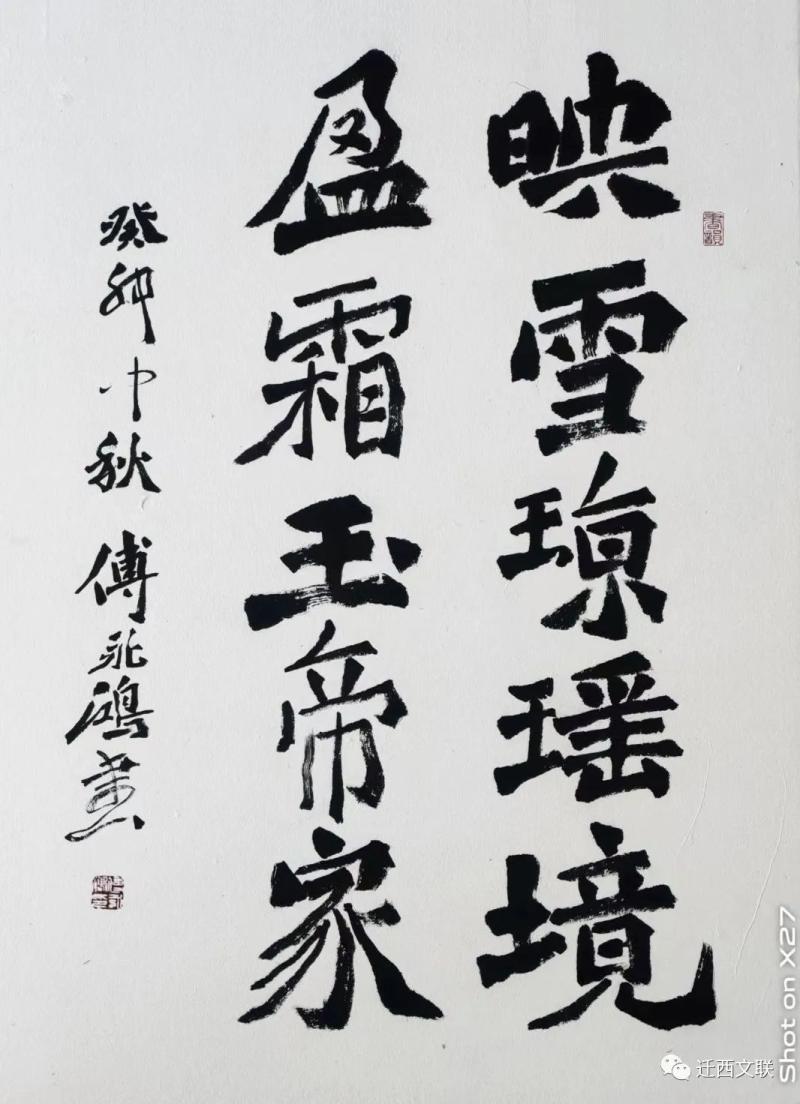 映雪琼瑶境
盈霜玉帝家
癸卯中秋 傅永鸿书
书韵
迁西文联
Shot on X27